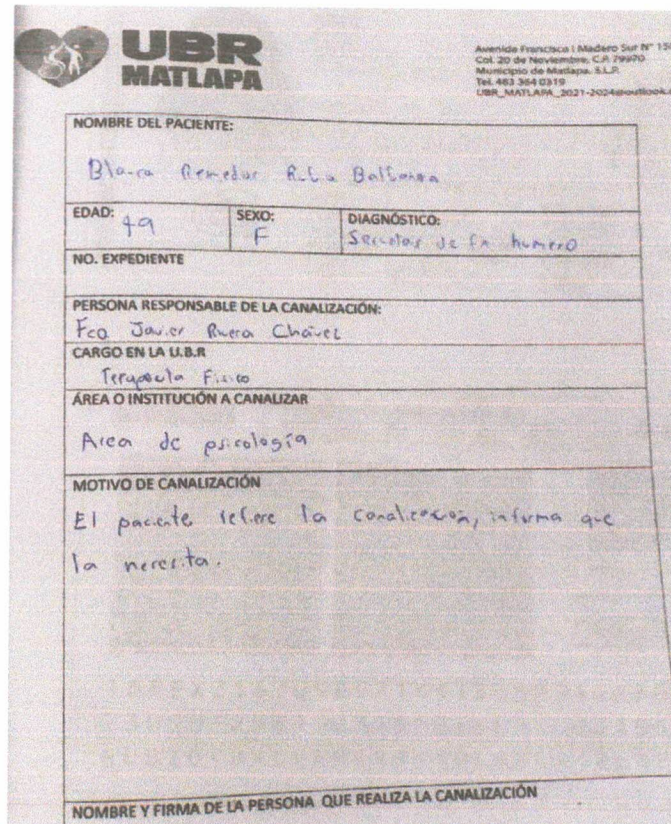 UBR
MATLAPA
Avenida Francisco I Madero Sur N° 15
Col. 20 de Noviembre, C.P. 79970
Municipio de Matlapa, S.L.P.
Tel. 483 364 0319
UBR_MATLAPA_2021-2024@outlook.
NOMBRE DEL PACIENTE:
Blanca
EDAD: 49 SEXO: F DIAGNÓSTICO:
de fx humero
NO. EXPEDIENTE
PERSONA RESPONSABLE DE LA CANALIZACIÓN:
Fco Javier Rivera Chávez
CARGO EN LA U.B.R
Terapeuta Fisico
ÁREA O INSTITUCIÓN A CANALIZAR
Area de psicología
MOTIVO DE CANALIZACIÓN
El paciente refiere la canalización, informa que
la necesita.
NOMBRE Y FIRMA DE LA PERSONA QUE REALIZA LA CANALIZACIÓN